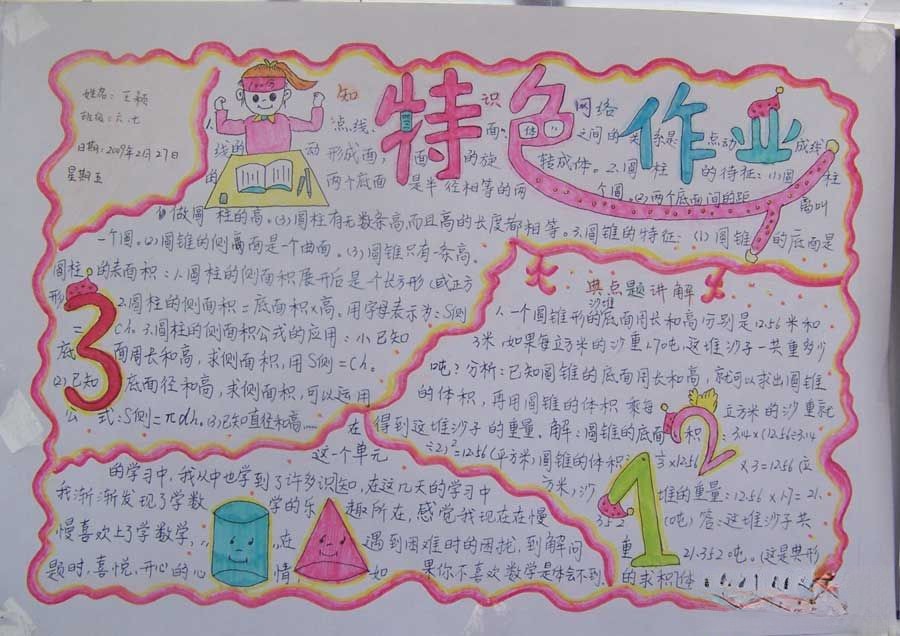 姓名：王颖
班级：六.七
日期：2009年2月27日
星期五
特色作业
知识网络
1、点、线、面、"体"之间的关系是：点动成线
线的动形成面，面的旋转成体。2.圆柱的特征：(1)圆柱
的两个底面是半径相等的两个圆。(2)两个底面间的距离叫
做圆柱的高。(3)圆柱有无数条高而且高的长度都相等。3.圆锥的特征：(1)圆锥的底面是
一个圆。(2)圆锥的侧面是一个曲面。(3)圆锥只有一条高。
圆柱的表面积：1.圆柱的侧面积展开后是一个长方形(或正方
形)2.圆柱的侧面积=底面积×高.用字母表示为：S侧
=Ch.3.圆柱的侧面积公式的应用：(1)已知
底面周长和高，求侧面积，用S侧=Ch。
(2)已知底面径和高，求侧面积，可以运用
公式：S侧=πdh。(3)已知直径和高……
3
典点题讲解
沙堆
1.一个圆锥形的底面周长和高分别是12.56米和
3米，如果每立方米的沙重1.70吨，这堆沙子一共重多少
吨？分析：已知圆锥的底面周长和高，就可以求出圆锥
的体积，再用圆锥的体积乘每立方米的沙重就
得到这堆沙子的重量。解：圆锥的底面积：3.14×(12.56÷3.14
÷2)²=12.56(平方米)圆锥的体积3×12.56×3=12.56(立
方米)沙堆的重量：12.56×1.7=21.
352(吨)答：这堆沙子共
重21.352吨。(这是典形
的求积体
2
1
在这一个单元
的学习中，我从中也学到了许多识知，在这几天的学习中
我渐渐发现了学数学的乐趣所在，感觉我现在在慢
慢喜欢上了学数学，在遇到困难时的困扰，到解问
题时，喜悦，开心的心情，如果你不喜欢数学是体会不到：